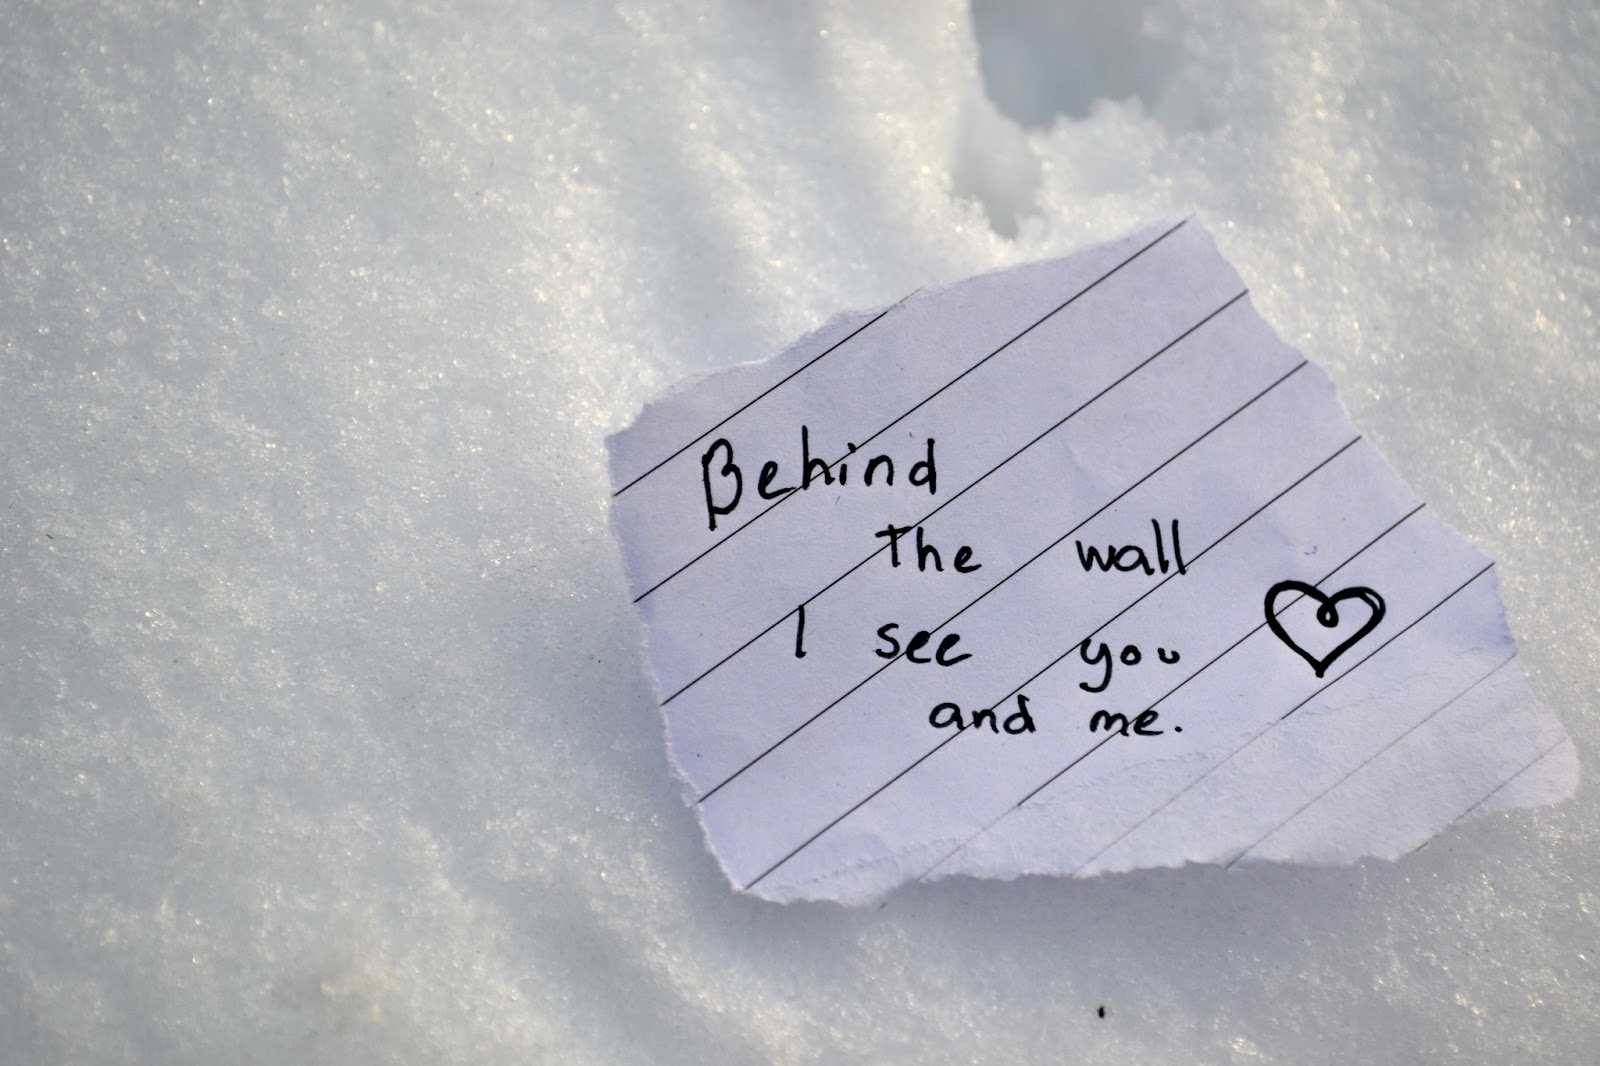 Behind
the wall
I see you
and me.